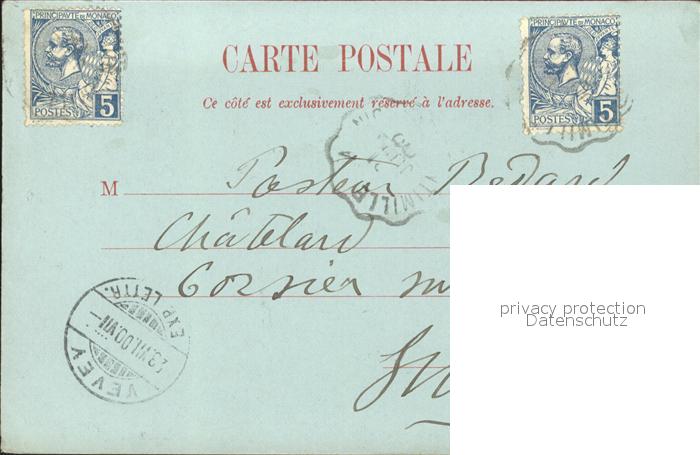 PRINCIPAUTE DE MONACO
5
POSTES
PRINCIPAUTE DE MONACO
5
POSTES
CARTE POSTALE
Ce côté est exclusivement réservé à l'adresse.
M Pasteur Bedard
Châtelard
Corsier
privacy protection
Datenschutz
VEVEY
EXP. LETTR.